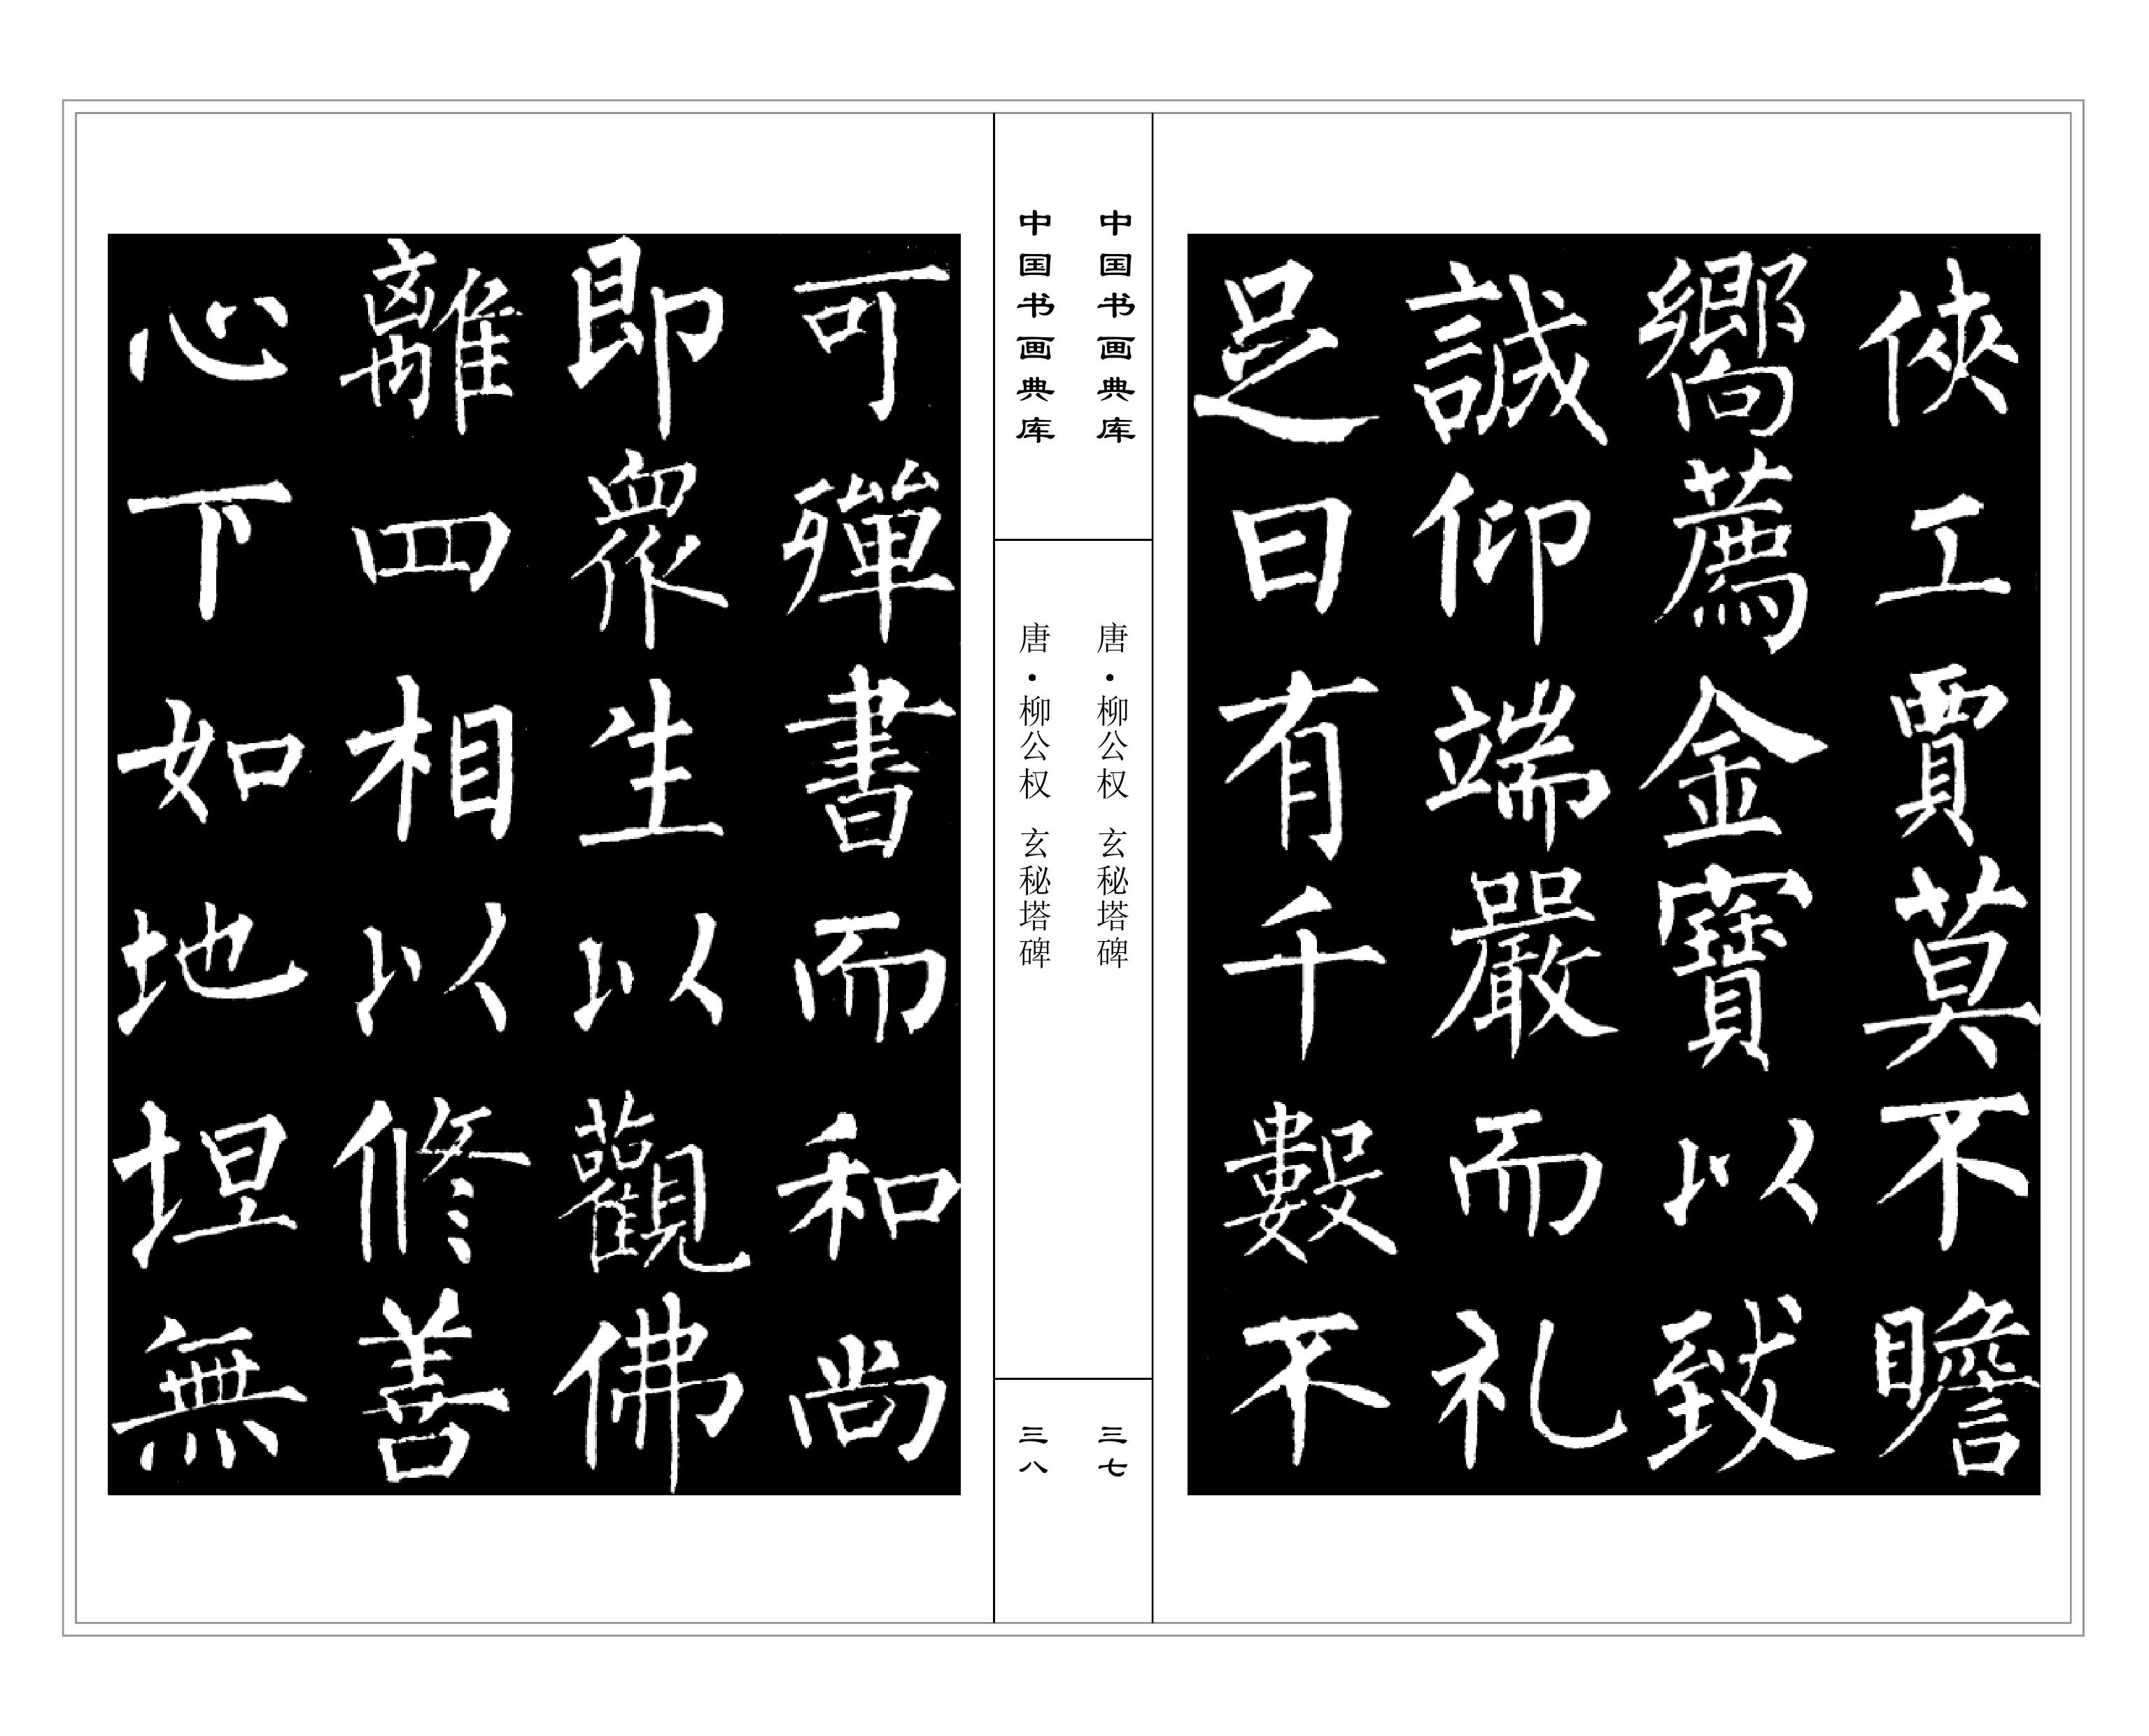 俠工賈莫不瞻
嚮薦金寶以致
誠仰端嚴而礼
足日有千數不
中国书画典库
唐·柳公权 玄秘塔碑
三七
中国书画典库
唐·柳公权 玄秘塔碑
三八
可殫書而和尚
即眾生以觀佛
離四相以修善
心下如地坦無